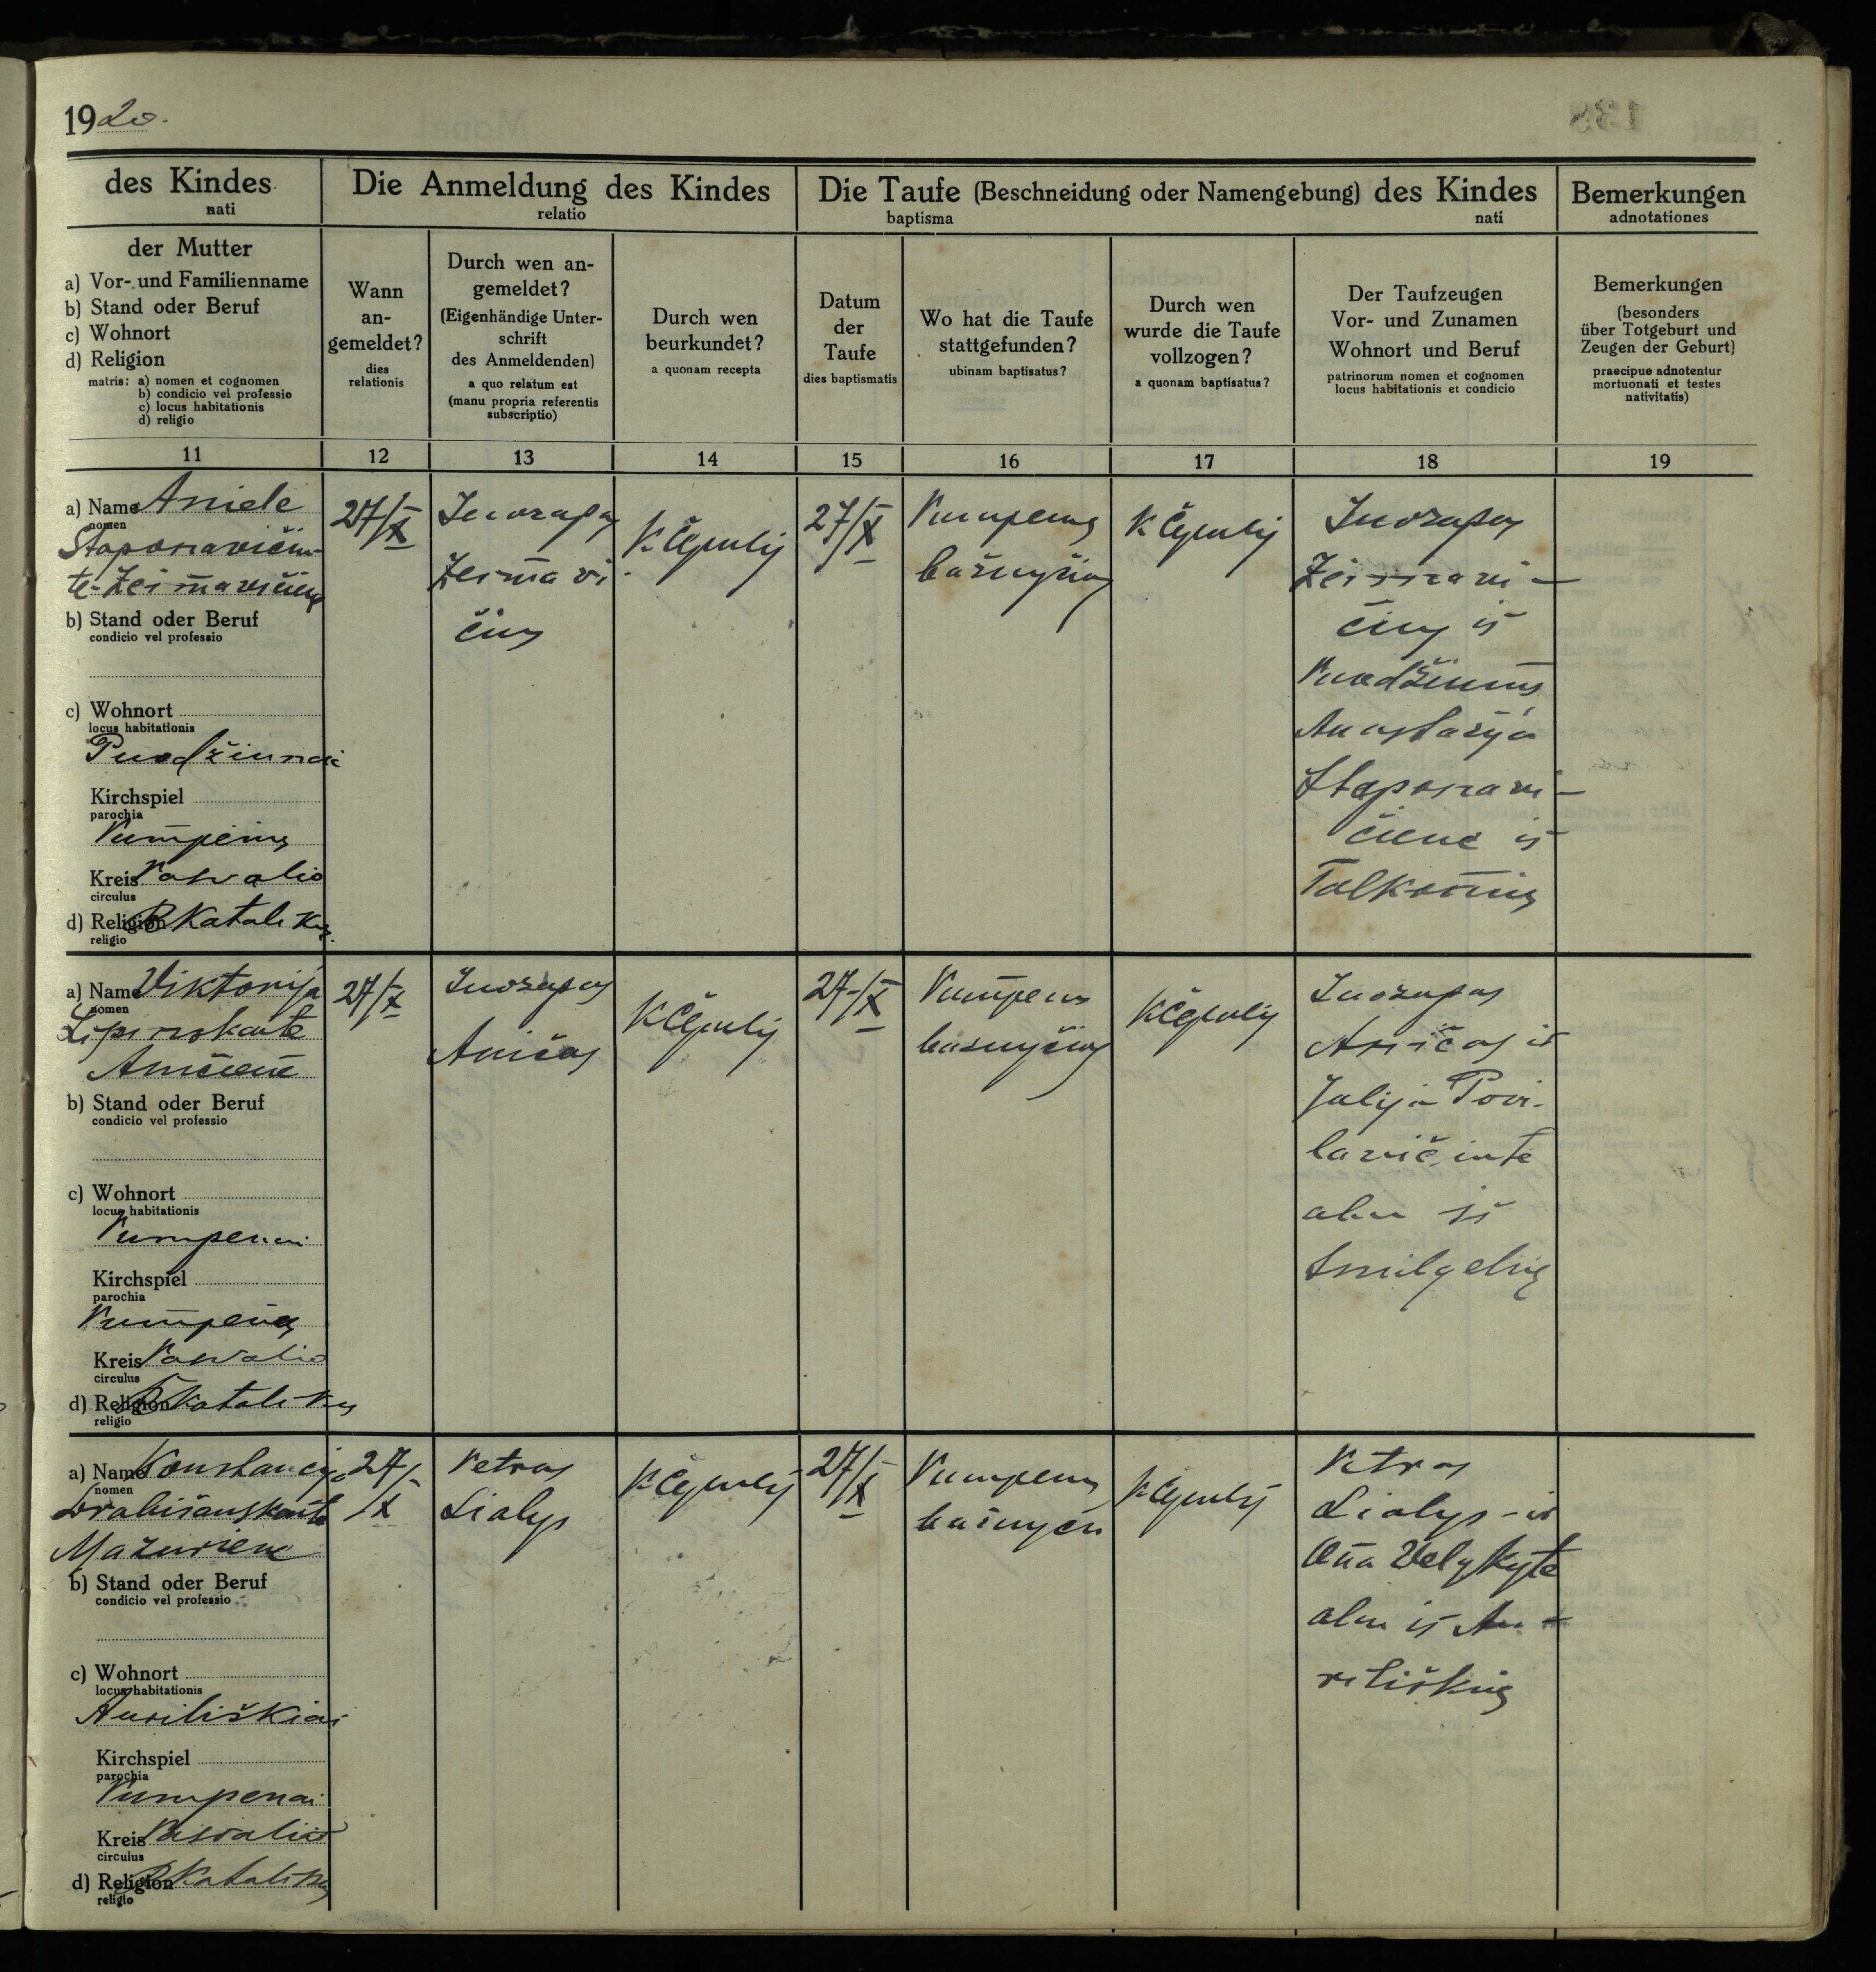 1920.
des Kindes
nati
Die Anmeldung des Kindes
relatio
Die Taufe (Beschneidung oder Namengebung) des Kindes
baptisma nati
Bemerkungen
adnotationes
der Mutter
a) Vor- und Familienname
b) Stand oder Beruf
c) Wohnort
d) Religion
matris: a) nomen et cognomen
b) condicio vel professio
c) locus habitationis
d) religio
Wann
an-
gemeldet?
dies
relationis
Durch wen an-
gemeldet?
(Eigenhändige Unter-
schrift
des Anmeldenden)
a quo relatum est
(manu propria referentis
subscriptio)
Durch wen
beurkundet?
a quonam recepta
Datum
der
Taufe
dies baptismatis
Wo hat die Taufe
stattgefunden?
ubinam baptisatus?
Durch wen
wurde die Taufe
vollzogen?
a quonam baptisatus?
Der Taufzeugen
Vor- und Zunamen
Wohnort und Beruf
patrinorum nomen et cognomen
locus habitationis et condicio
Bemerkungen
(besonders
über Totgeburt und
Zeugen der Geburt)
praecipue adnotentur
mortuonati et testes
nativitatis)
11 12 13 14 15 16 17 18 19
a) Name Aniele
nomen
Staponavičiu-
te-Zeimavičienė
b) Stand oder Beruf
condicio vel professio
c) Wohnort
locus habitationis
Puodžiunai
Kirchspiel
parochia
Pumpėnų
Kreis Pasvalio
circulus
d) Religion R Katalikų
religio
27/X
Juozapas
Zeimavi-
čius
K Čepulis
27/X
Pumpenų
bažnyčioj
K Čepulis
Juozapas
Zeimavi-
čius iš
Puodžiunų
Anastazija
Staponavi-
čienė iš
Talkonių
a) Name Viktorija
nomen
Lipinskaitė
Aničienė
b) Stand oder Beruf
condicio vel professio
c) Wohnort
locus habitationis
Pumpenai
Kirchspiel
parochia
Pumpėnų
Kreis Pasvalio
circulus
d) Religion R Katalikų
religio
27/X
Juozapas
Aničas
K Čepulis
27/X
Pumpenų
bažnyčioj
K Čepulis
Juozapas
Aničas ir
Julija Povi-
lavičiutė
abu iš
Smilgelių
a) Name Konstancija
nomen
Drabišauskaitė
Mažurienė
b) Stand oder Beruf
condicio vel professio
c) Wohnort
locus habitationis
Auriliškiai
Kirchspiel
parochia
Pumpenai
Kreis Pasvalio
circulus
d) Religion R Katalikų
religio
27/X
Petras
Lialys
K Čepulis
27/X
Pumpenų
bažnyčio
K Čepulis
Petras
Lialys ir
Ona Velykytė
abu iš Au-
riliškių